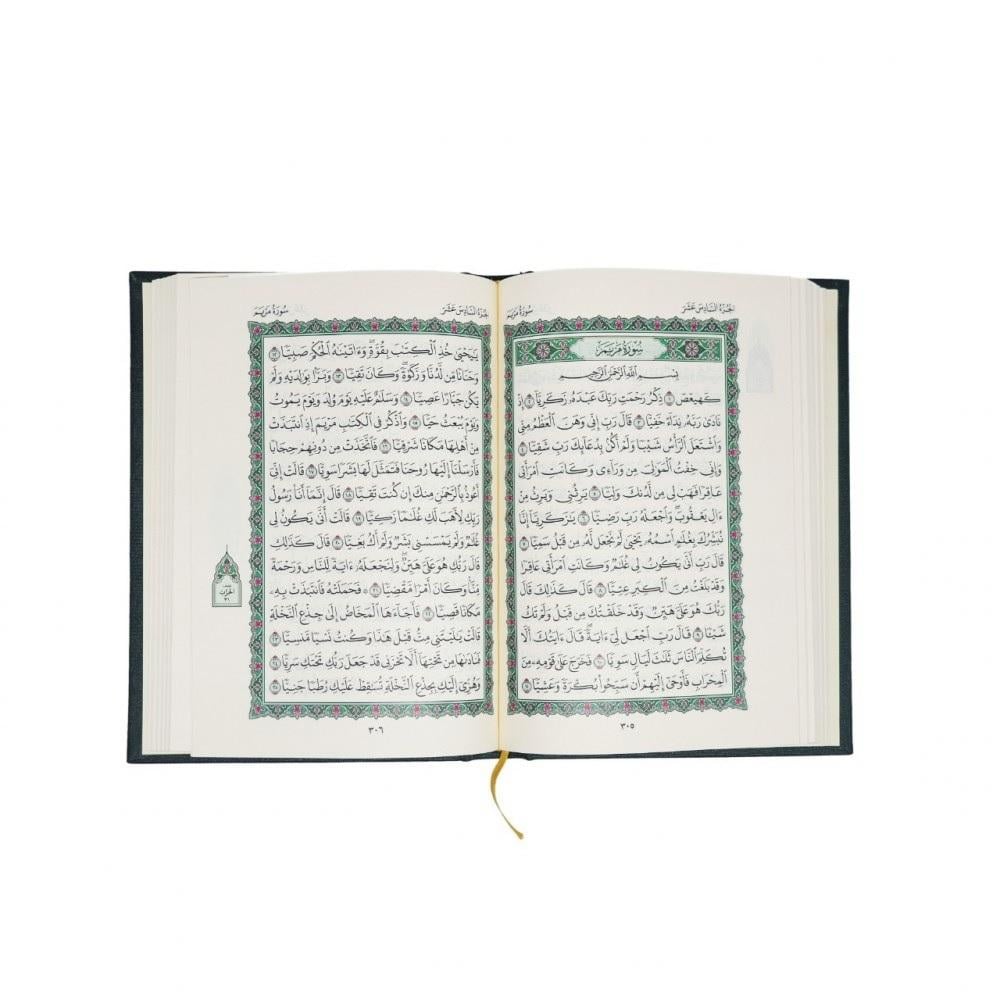 الجزء السادس عشر
سورة مريم
سُورَةُ مَرۡيَمَ
بِسۡمِ ٱللَّهِ ٱلرَّحۡمَٰنِ ٱلرَّحِيمِ
كٓهيعٓصٓ ١ ذِكۡرُ رَحۡمَتِ رَبِّكَ عَبۡدَهُۥ زَكَرِيَّآ ٢ إِذۡ
نَادَىٰ رَبَّهُۥ نِدَآءً خَفِيّٗا ٣ قَالَ رَبِّ إِنِّي وَهَنَ ٱلۡعَظۡمُ مِنِّي
وَٱشۡتَعَلَ ٱلرَّأۡسُ شَيۡبٗا وَلَمۡ أَكُنۢ بِدُعَآئِكَ رَبِّ شَقِيّٗا ٤
وَإِنِّي خِفۡتُ ٱلۡمَوَٰلِيَ مِن وَرَآءِي وَكَانَتِ ٱمۡرَأَتِي
عَاقِرٗا فَهَبۡ لِي مِن لَّدُنكَ وَلِيّٗا ٥ يَرِثُنِي وَيَرِثُ مِنۡ
ءَالِ يَعۡقُوبَۖ وَٱجۡعَلۡهُ رَبِّ رَضِيّٗا ٦ يَٰزَكَرِيَّآ إِنَّا
نُبَشِّرُكَ بِغُلَٰمٍ ٱسۡمُهُۥ يَحۡيَىٰ لَمۡ نَجۡعَل لَّهُۥ مِن قَبۡلُ سَمِيّٗا ٧
قَالَ رَبِّ أَنَّىٰ يَكُونُ لِي غُلَٰمٞ وَكَانَتِ ٱمۡرَأَتِي عَاقِرٗا
وَقَدۡ بَلَغۡتُ مِنَ ٱلۡكِبَرِ عِتِيّٗا ٨ قَالَ كَذَٰلِكَ قَالَ
رَبُّكَ هُوَ عَلَيَّ هَيِّنٞ وَقَدۡ خَلَقۡتُكَ مِن قَبۡلُ وَلَمۡ تَكُ
شَيۡـٔٗا ٩ قَالَ رَبِّ ٱجۡعَل لِّيٓ ءَايَةٗۖ قَالَ ءَايَتُكَ أَلَّا
تُكَلِّمَ ٱلنَّاسَ ثَلَٰثَ لَيَالٖ سَوِيّٗا ١٠ فَخَرَجَ عَلَىٰ قَوۡمِهِۦ مِنَ
ٱلۡمِحۡرَابِ فَأَوۡحَىٰٓ إِلَيۡهِمۡ أَن سَبِّحُواْ بُكۡرَةٗ وَعَشِيّٗا ١١
٣٠٥
الجزء السادس عشر
سورة مريم
يَٰيَحۡيَىٰ خُذِ ٱلۡكِتَٰبَ بِقُوَّةٖۖ وَءَاتَيۡنَٰهُ ٱلۡحُكۡمَ صَبِيّٗا ١٢
وَحَنَانٗا مِّن لَّدُنَّا وَزَكَوٰةٗۖ وَكَانَ تَقِيّٗا ١٣ وَبَرَّۢا بِوَٰلِدَيۡهِ وَلَمۡ
يَكُن جَبَّارًا عَصِيّٗا ١٤ وَسَلَٰمٌ عَلَيۡهِ يَوۡمَ وُلِدَ وَيَوۡمَ يَمُوتُ
وَيَوۡمَ يُبۡعَثُ حَيّٗا ١٥ وَٱذۡكُرۡ فِي ٱلۡكِتَٰبِ مَرۡيَمَ إِذِ ٱنتَبَذَتۡ
مِنۡ أَهۡلِهَا مَكَانٗا شَرۡقِيّٗا ١٦ فَٱتَّخَذَتۡ مِن دُونِهِمۡ حِجَابٗا
فَأَرۡسَلۡنَآ إِلَيۡهَا رُوحَنَا فَتَمَثَّلَ لَهَا بَشَرٗا سَوِيّٗا ١٧ قَالَتۡ إِنِّيٓ
أَعُوذُ بِٱلرَّحۡمَٰنِ مِنكَ إِن كُنتَ تَقِيّٗا ١٨ قَالَ إِنَّمَآ أَنَا۠ رَسُولُ
رَبِّكِ لِأَهَبَ لَكِ غُلَٰمٗا زَكِيّٗا ١٩ قَالَتۡ أَنَّىٰ يَكُونُ لِي
غُلَٰمٞ وَلَمۡ يَمۡسَسۡنِي بَشَرٞ وَلَمۡ أَكُ بَغِيّٗا ٢٠ قَالَ كَذَٰلِكِ
قَالَ رَبُّكِ هُوَ عَلَيَّ هَيِّنٞۖ وَلِنَجۡعَلَهُۥٓ ءَايَةٗ لِّلنَّاسِ وَرَحۡمَةٗ
مِّنَّاۚ وَكَانَ أَمۡرٗا مَّقۡضِيّٗا ٢١ ۞ فَحَمَلَتۡهُ فَٱنتَبَذَتۡ بِهِۦ
مَكَانٗا قَصِيّٗا ٢٢ فَأَجَآءَهَا ٱلۡمَخَاضُ إِلَىٰ جِذۡعِ ٱلنَّخۡلَةِ
قَالَتۡ يَٰلَيۡتَنِي مِتُّ قَبۡلَ هَٰذَا وَكُنتُ نَسۡيٗا مَّنسِيّٗا ٢٣
فَنَادَىٰهَا مِن تَحۡتِهَآ أَلَّا تَحۡزَنِي قَدۡ جَعَلَ رَبُّكِ تَحۡتَكِ سَرِيّٗا ٢٤
وَهُزِّيٓ إِلَيۡكِ بِجِذۡعِ ٱلنَّخۡلَةِ تُسَٰقِطۡ عَلَيۡكِ رُطَبٗا جَنِيّٗا ٢٥
الحزب
٣١
٣٠٦